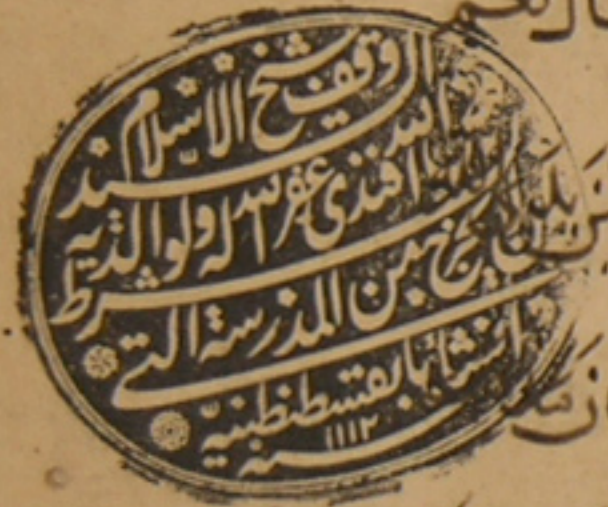 وقف شيخ الاسلام
السيد
افندى غفر الله له ولوالديه
بشرط ان لا يخرج من المدرسة التي
انشأها بقسطنطنية
سنة ١١١٢